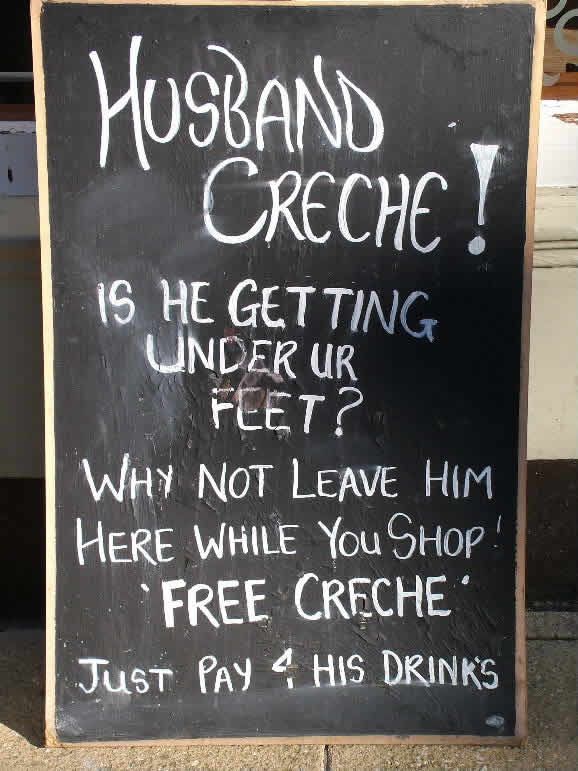 HUSBAND
CRECHE!
IS HE GETTING
UNDER UR
FEET?
WHY NOT LEAVE HIM
HERE WHILE YOU SHOP!
'FREE CRECHE'
JUST PAY 4 HIS DRINK'S